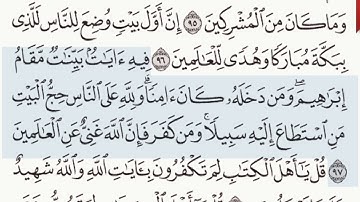 وَمَا كَانَ مِنَ ٱلْمُشْرِكِينَ ٩٥ إِنَّ أَوَّلَ بَيْتٍ وُضِعَ لِلنَّاسِ لَلَّذِى
بِبَكَّةَ مُبَارَكًا وَهُدًى لِّلْعَٰلَمِينَ ٩٦ فِيهِ ءَايَٰتٌۢ بَيِّنَٰتٌ مَّقَامُ
إِبْرَٰهِيمَ ۖ وَمَن دَخَلَهُۥ كَانَ ءَامِنًا ۗ وَلِلَّهِ عَلَى ٱلنَّاسِ حِجُّ ٱلْبَيْتِ
مَنِ ٱسْتَطَاعَ إِلَيْهِ سَبِيلًا ۚ وَمَن كَفَرَ فَإِنَّ ٱللَّهَ غَنِىٌّ عَنِ ٱلْعَٰلَمِينَ
٩٧ قُلْ يَٰٓأَهْلَ ٱلْكِتَٰبِ لِمَ تَكْفُرُونَ بِـَٔايَٰتِ ٱللَّهِ وَٱللَّهُ شَهِيدٌ